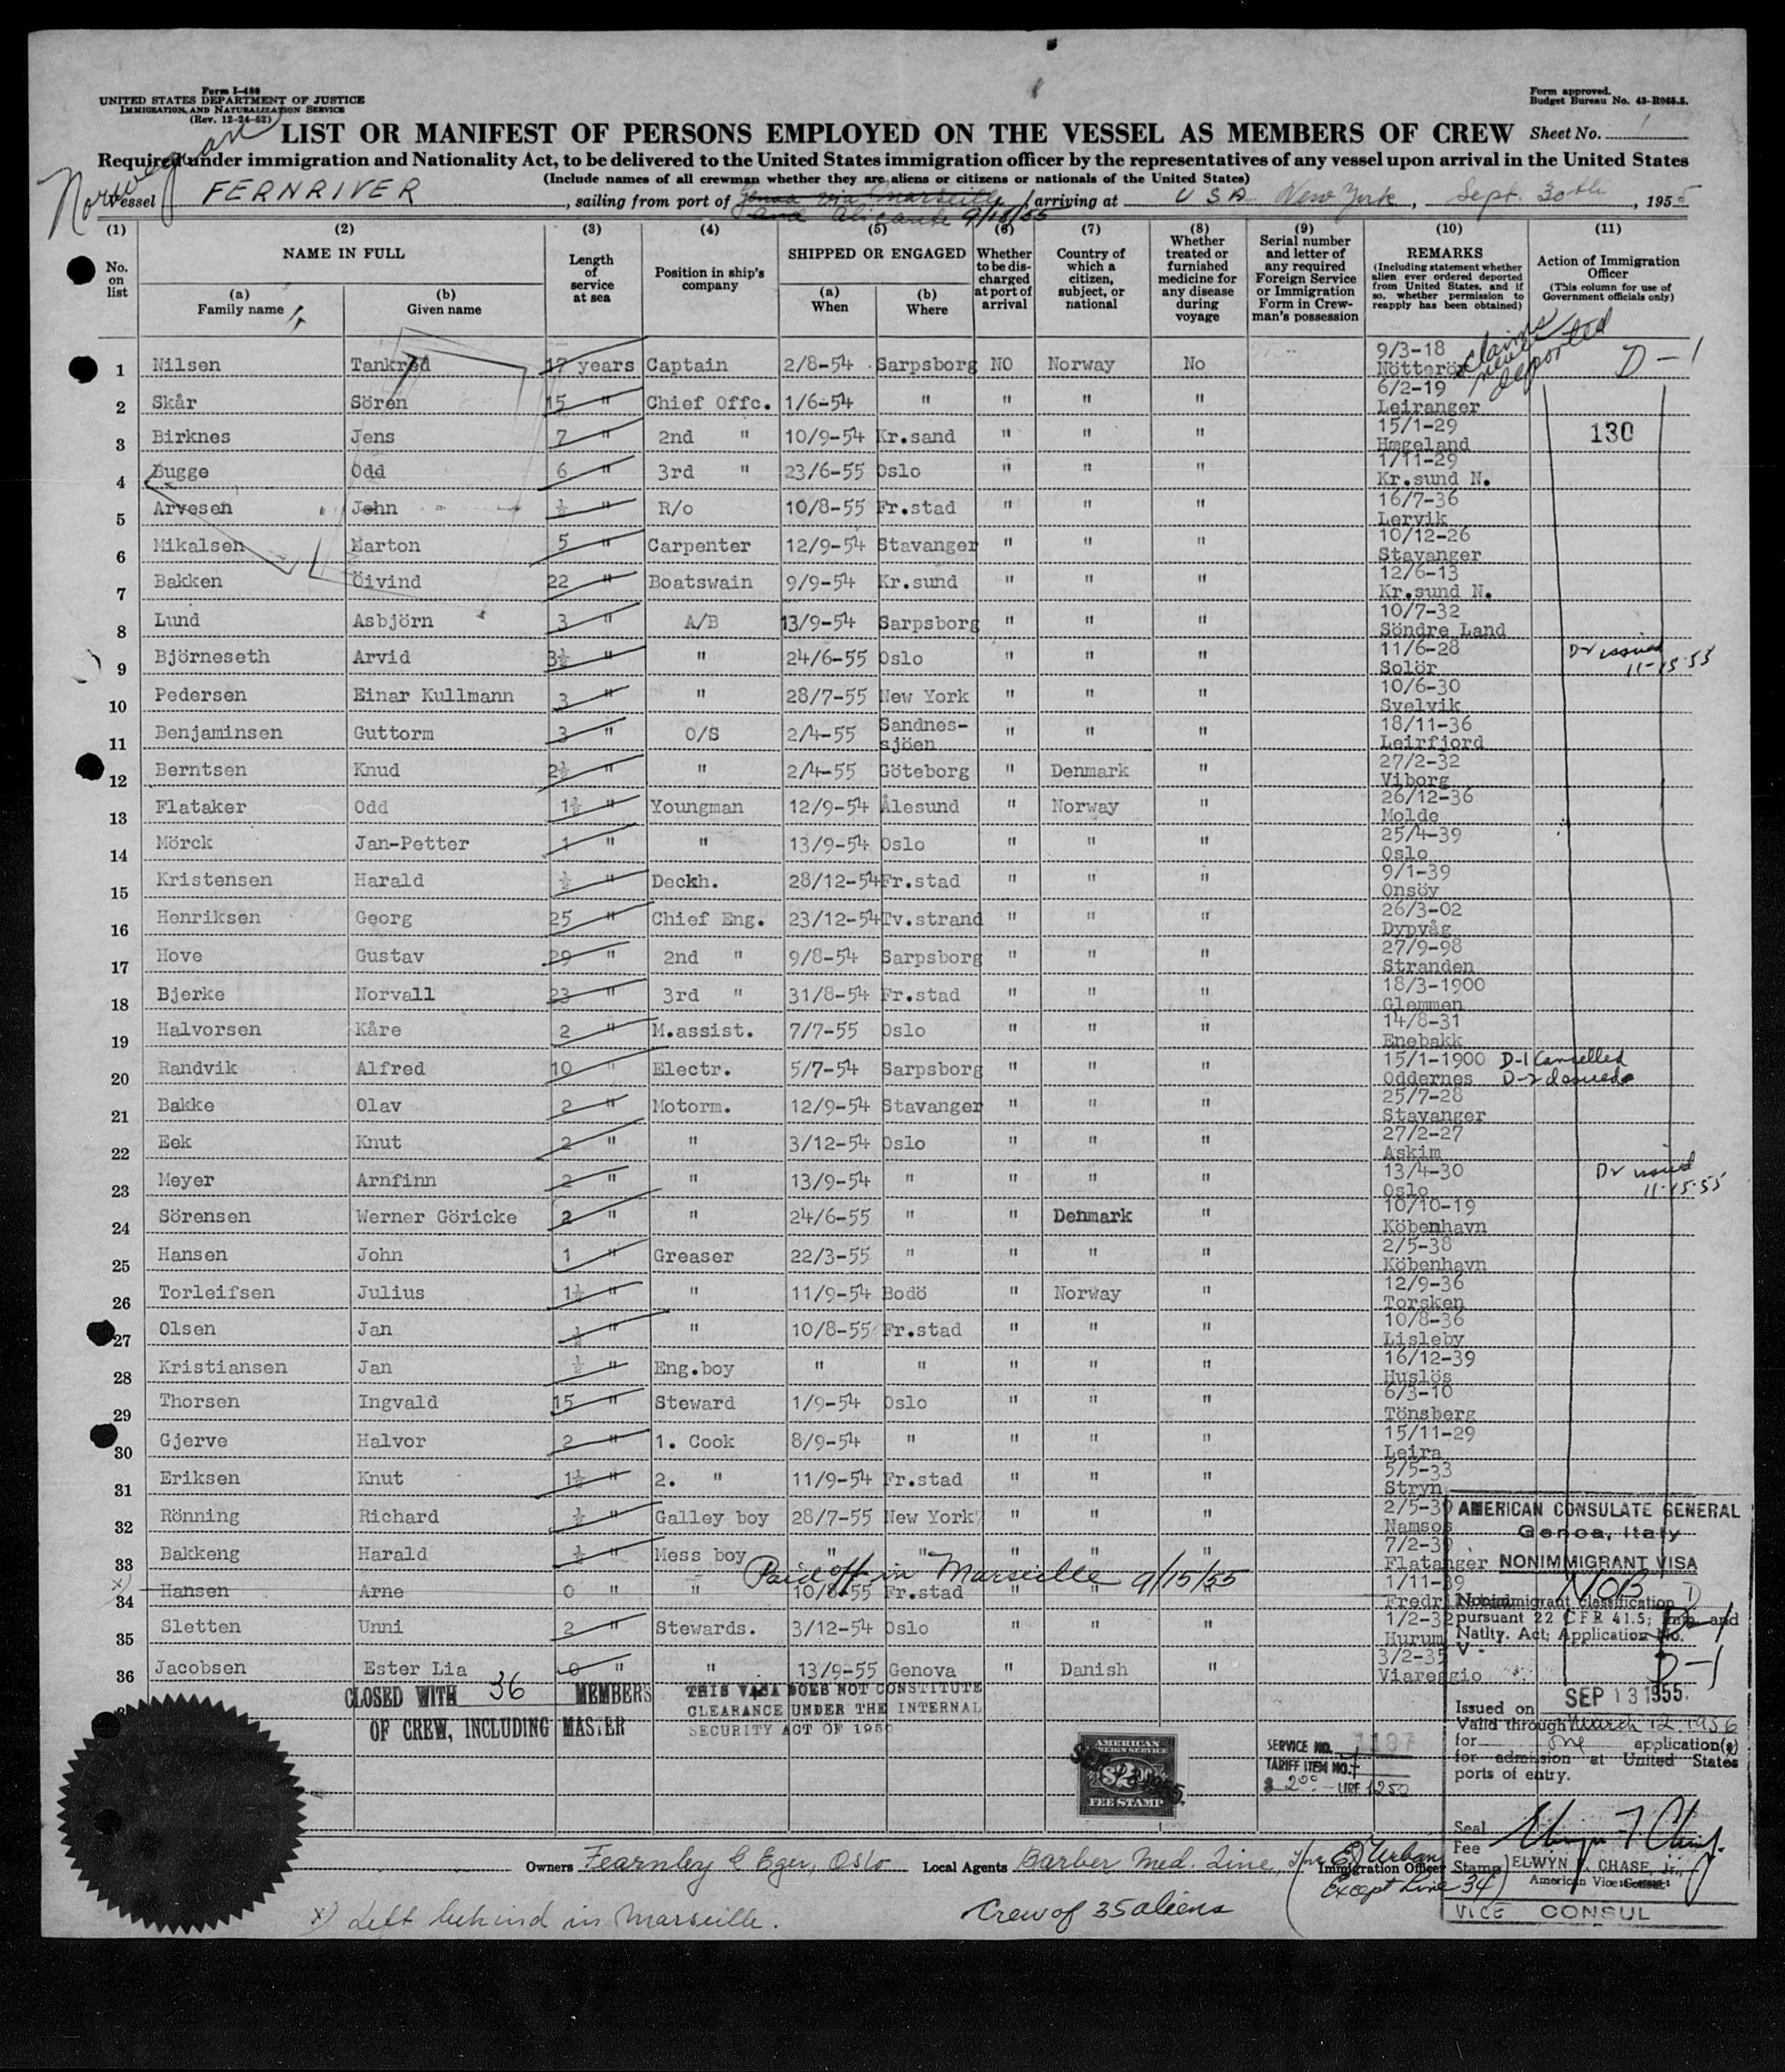 Form I-480
UNITED STATES DEPARTMENT OF JUSTICE
IMMIGRATION AND NATURALIZATION SERVICE
(Rev. 12-24-52)
Form approved.
Budget Bureau No. 43-R065.5.
LIST OR MANIFEST OF PERSONS EMPLOYED ON THE VESSEL AS MEMBERS OF CREW Sheet No. 1
Required under immigration and Nationality Act, to be delivered to the United States immigration officer by the representatives of any vessel upon arrival in the United States
(Include names of all crewman whether they are aliens or citizens or nationals of the United States)
Norwegian
Vessel FERNRIVER, sailing from port of Genoa via Marseille, arriving at USA New York, Sept. 30th, 1955
and Alicante 9/18/55
(1) No. on list
(2) NAME IN FULL (a) Family name (b) Given name
(3) Length of service at sea
(4) Position in ship's company
(5) SHIPPED OR ENGAGED (a) When (b) Where
(6) Whether to be discharged at port of arrival
(7) Country of which a citizen, subject, or national
(8) Whether treated or furnished medicine for any disease during voyage
(9) Serial number and letter of any required Foreign Service or Immigration Form in Crewman's possession
(10) REMARKS (Including statement whether alien ever ordered deported from United States, and if so, whether permission to reapply has been obtained)
(11) Action of Immigration Officer (This column for use of Government officials only)
claims never deported
1 Nilsen Tankred 17 years Captain 2/8-54 Sarpsborg NO Norway No 9/3-18 Nötterö D-1
2 Skår Sören 15 " Chief Offc. 1/6-54 " " " " 6/2-19 Leiranger
3 Birknes Jens 7 " 2nd " 10/9-54 Kr.sand " " " 15/1-29 Hægeland 130
4 Bugge Odd 6 " 3rd " 23/6-55 Oslo " " " 1/11-29 Kr.sund N.
5 Arvesen John ½ " R/o 10/8-55 Fr.stad " " " 16/7-36 Lervik
6 Mikalsen Marton 5 " Carpenter 12/9-54 Stavanger " " " 10/12-26 Stavanger
7 Bakken Öivind 22 " Boatswain 9/9-54 Kr.sund " " " 12/6-13 Kr.sund N.
8 Lund Asbjörn 3 " A/B 13/9-54 Sarpsborg " " " 10/7-32 Söndre Land
9 Björneseth Arvid 3½ " " 24/6-55 Oslo " " " 11/6-28 Solör D-2 issued 11-15-55
10 Pedersen Einar Kullmann 3 " " 28/7-55 New York " " " 10/6-30 Svelvik
11 Benjaminsen Guttorm 3 " O/S 2/4-55 Sandnes-sjöen " " " 18/11-36 Leirfjord
12 Berntsen Knud 2½ " " 2/4-55 Göteborg " Denmark " 27/2-32 Viborg
13 Flataker Odd 1½ " Youngman 12/9-54 Ålesund " Norway " 26/12-36 Molde
14 Mörck Jan-Petter 1 " " 13/9-54 Oslo " " " 25/4-39 Oslo
15 Kristensen Harald ½ " Deckh. 28/12-54 Fr.stad " " " 9/1-39 Onsöy
16 Henriksen Georg 25 " Chief Eng. 23/12-54 Tv.strand " " " 26/3-02 Dypvåg
17 Hove Gustav 29 " 2nd " 9/8-54 Sarpsborg " " " 27/9-98 Stranden
18 Bjerke Norvall 23 " 3rd " 31/8-54 Fr.stad " " " 18/3-1900 Glemmen
19 Halvorsen Kåre 2 " M.assist. 7/7-55 Oslo " " " 14/8-31 Enebakk
20 Randvik Alfred 10 " Electr. 5/7-54 Sarpsborg " " " 15/1-1900 Oddernes D-1 Cancelled D-2 issued
21 Bakke Olav 2 " Motorm. 12/9-54 Stavanger " " " 25/7-28 Stavanger
22 Eek Knut 2 " " 3/12-54 Oslo " " " 27/2-27 Askim
23 Meyer Arnfinn 2 " " 13/9-54 " " " " 13/4-30 Oslo D2 issued 11-15-55
24 Sörensen Werner Göricke 2 " " 24/6-55 " " Denmark " 10/10-19 Köbenhavn
25 Hansen John 1 " Greaser 22/3-55 " " " " 2/5-38 Köbenhavn
26 Torleifsen Julius 1½ " " 11/9-54 Bodö " Norway " 12/9-36 Torsken
27 Olsen Jan ½ " " 10/8-55 Fr.stad " " " 10/8-36 Lisleby
28 Kristiansen Jan ½ " Eng.boy " " " " " 16/12-39 Huslös
29 Thorsen Ingvald 15 " Steward 1/9-54 Oslo " " " 6/3-10 Tönsberg
30 Gjerve Halvor 2 " 1. Cook 8/9-54 " " " " 15/11-29 Leira
31 Eriksen Knut 1½ " 2. " 11/9-54 Fr.stad " " " 5/5-33 Stryn
32 Rönning Richard ½ " Galley boy 28/7-55 New York " " " 2/5-39 Namsos
33 Bakkeng Harald ½ " Mess boy " " " " " 7/2-39 Flatanger
Paid off in Marseille 9/15/55
x) 34 Hansen Arne 0 " " 10/8-55 Fr.stad " " " 1/11-39
35 Sletten Unni 2 " Stewards. 3/12-54 Oslo " " " 1/2-32 Hurum
36 Jacobsen Ester Lia 0 " " 13/9-55 Genova " Danish " 3/2-35 Viareggio
CLOSED WITH 36 MEMBERS
OF CREW, INCLUDING MASTER
THIS VISA DOES NOT CONSTITUTE
CLEARANCE UNDER THE INTERNAL
SECURITY ACT OF 1950
AMERICAN CONSULATE GENERAL
Genoa, Italy
NONIMMIGRANT VISA
Nonimmigrant classification D
pursuant 22 CFR 41.5; Imm. and
Natlty. Act; Application No.
V -
D-1
D-1
Issued on SEP 13 1955
Valid through March 12, 1956
for one application(s)
for admission at United States
ports of entry.
AMERICAN
FOREIGN SERVICE
$2
FEE STAMP
SERVICE NO. 1187
TARIFF ITEM NO. 7
$ 2.00 — LIRE 1250
Seal
Fee
Stamp
ELWYN F. CHASE, Jr.,
American Vice Consul
VICE CONSUL
Owners Fearnley & Eger, Oslo Local Agents Barber Med. Line, Inc. Immigration Officer
(Except Line 34)
x) Left behind in Marseille.
Crew of 35 aliens